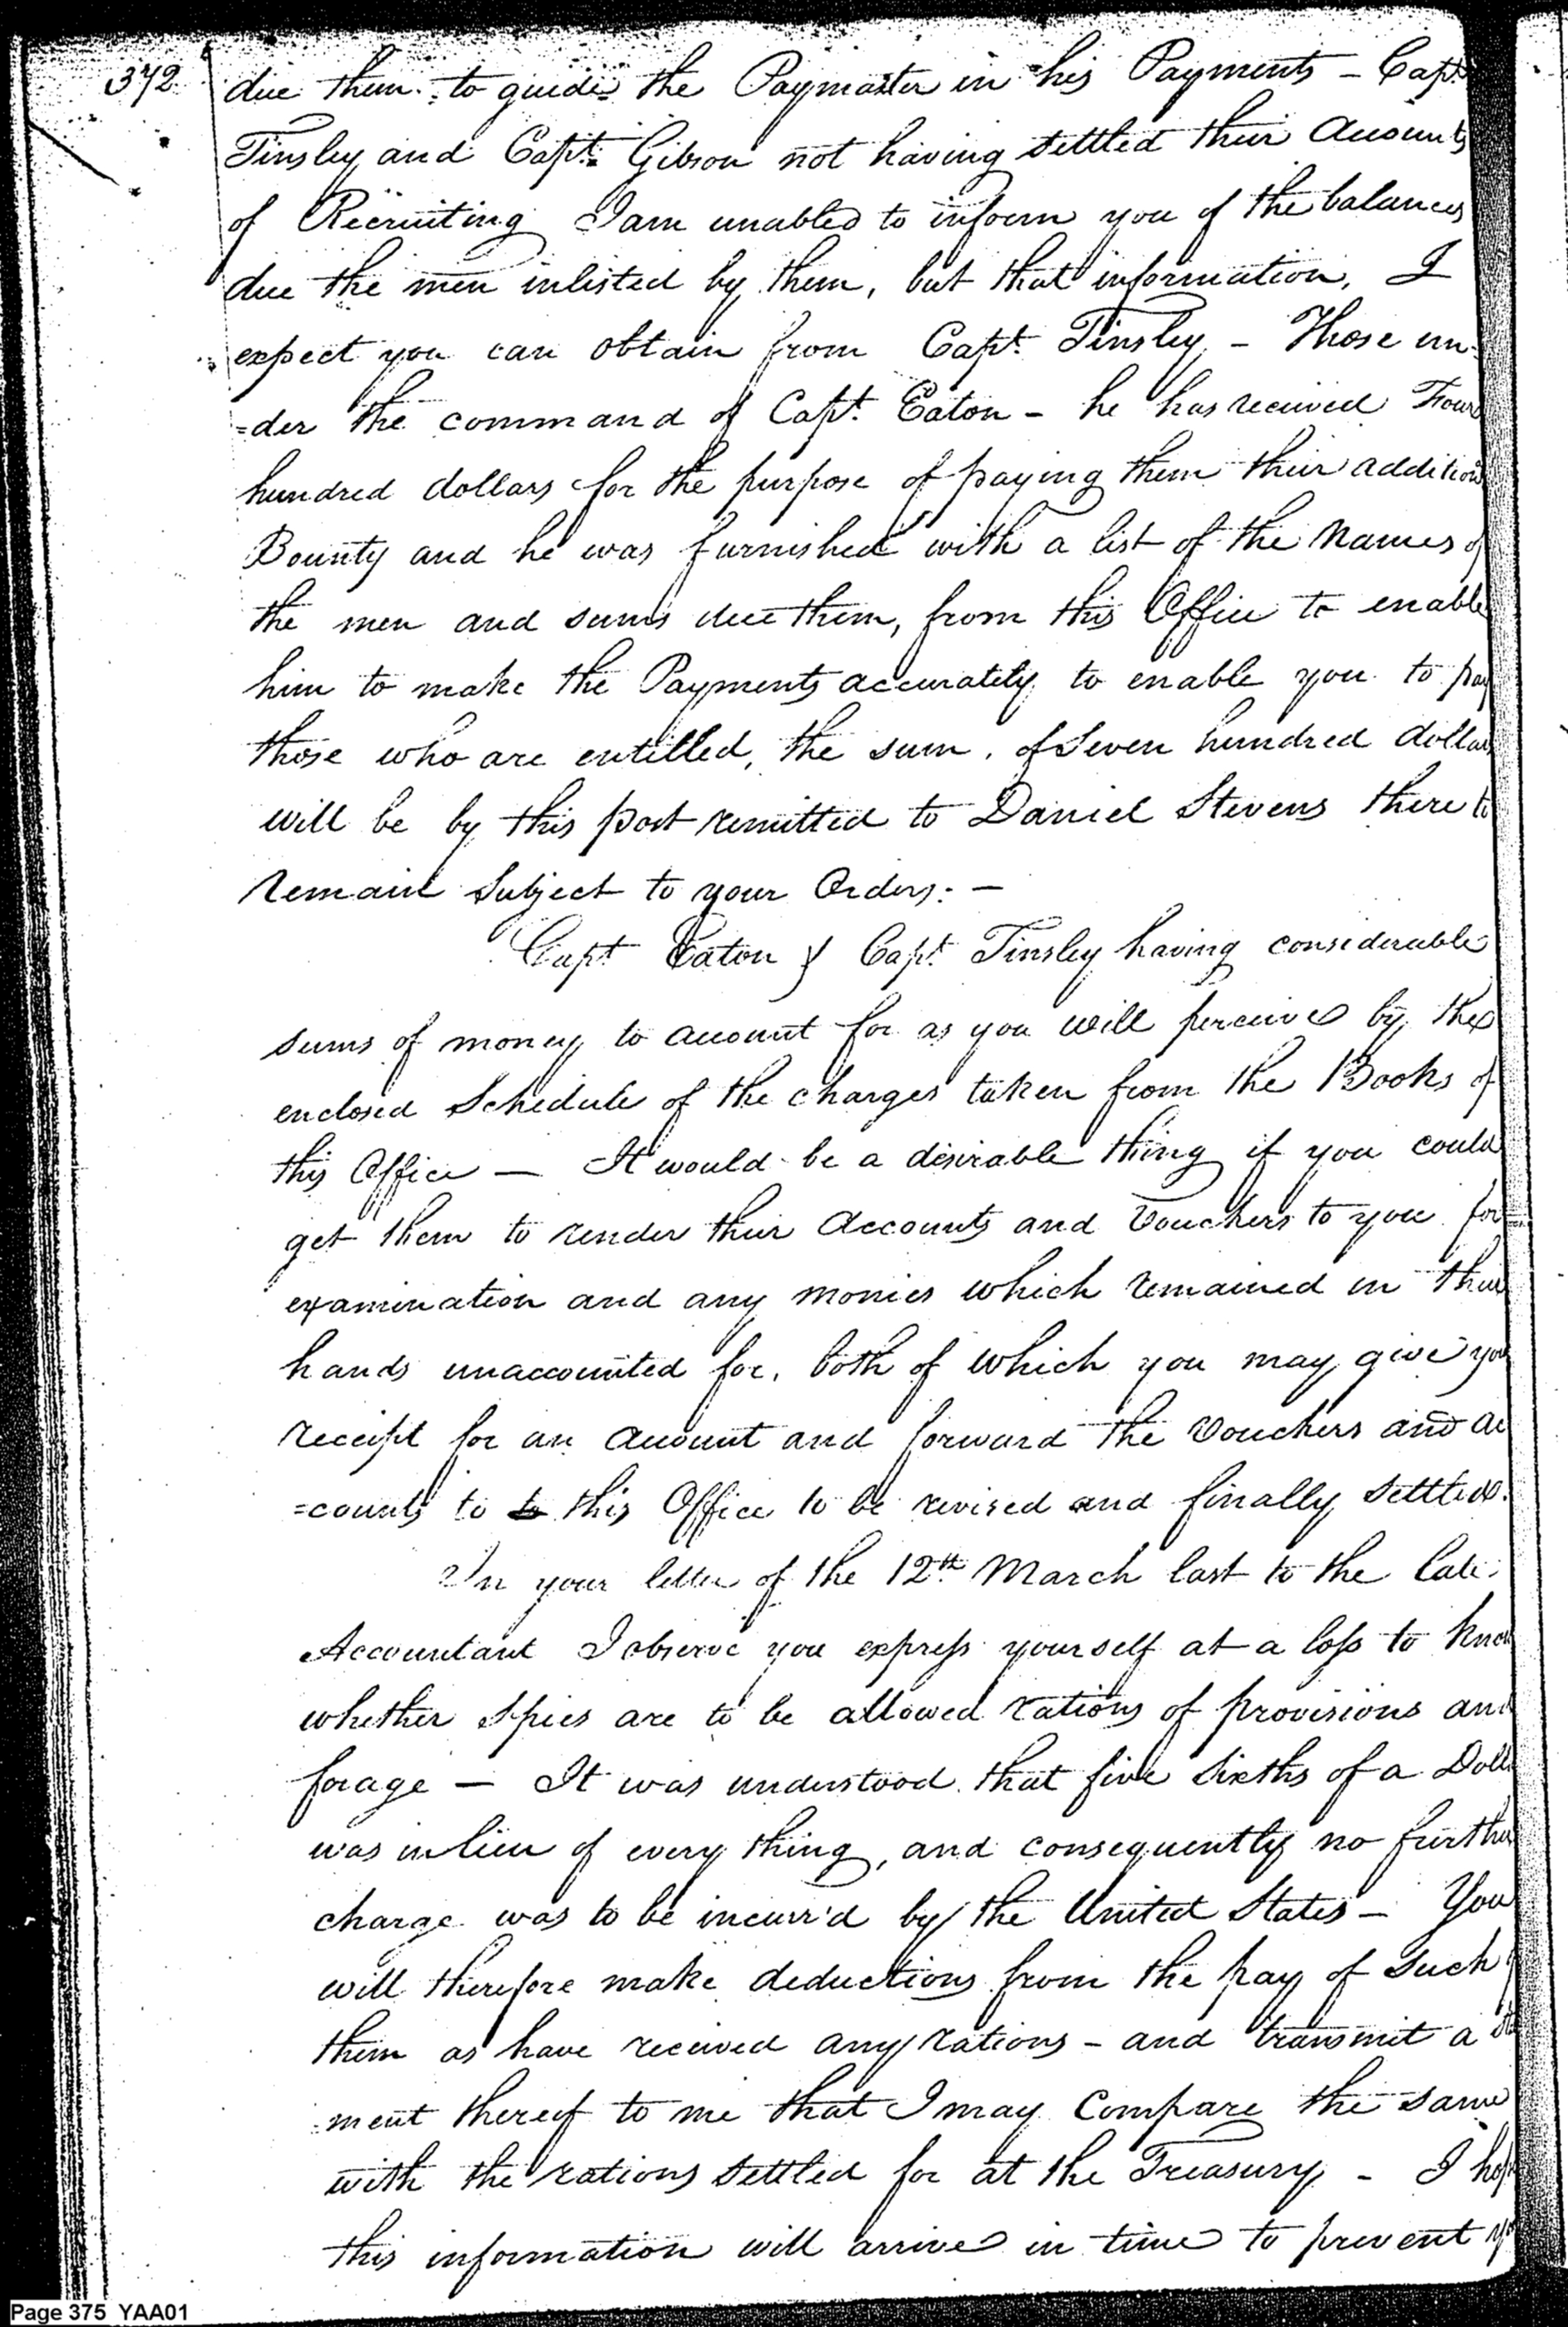 372
due them to guide the Paymaster in his Payments - Capt.
Tinsley and Capt. Gibson not having settled their Accounts
of Recruiting I am unabled to inform you of the balances
due the men inlisted by them, but that information, I
expect you can obtain from Capt. Tinsley - Those un-
=der the command of Capt. Eaton - he has received Four
hundred dollars for the purpose of paying them their addition
Bounty and he was furnished with a list of the Names of
the men and sums due them, from this Office to enable
him to make the Payments accurately to enable you to pay
those who are entitled, the sum, of Seven hundred dollars
will be by this post remitted to Daniel Stevens there to
remain Subject to your Orders: -
Capt Eaton & Capt. Tinsley having considerable
sums of money to account for as you will perceive by the
enclosed Schedule of the charges taken from the Books of
this Office - It would be a desirable thing if you could
get them to render their Accounts and Vouchers to you for
examination and any monies which remained in their
hands unaccounted for, both of which you may give you
receipt for an Account and forward the Vouchers and Ac
=counts to to this Office to be revised and finally settled.
In your letter of the 12th March last to the late
Accountant I observe you express yourself at a loss to know
whether Spies are to be allowed rations of provisions and
forage - It was understood that five sixths of a Doll
was in lieu of every thing, and consequently no further
charge was to be incurr'd by the United States - You
will therefore make deductions from the pay of Such of
them as have received any rations - and transmit a st
ment thereof to me that I may Compare the same
with the rations settled for at the Treasury - I hope
this information will arrive in time to prevent yo
Page 375 YAA01